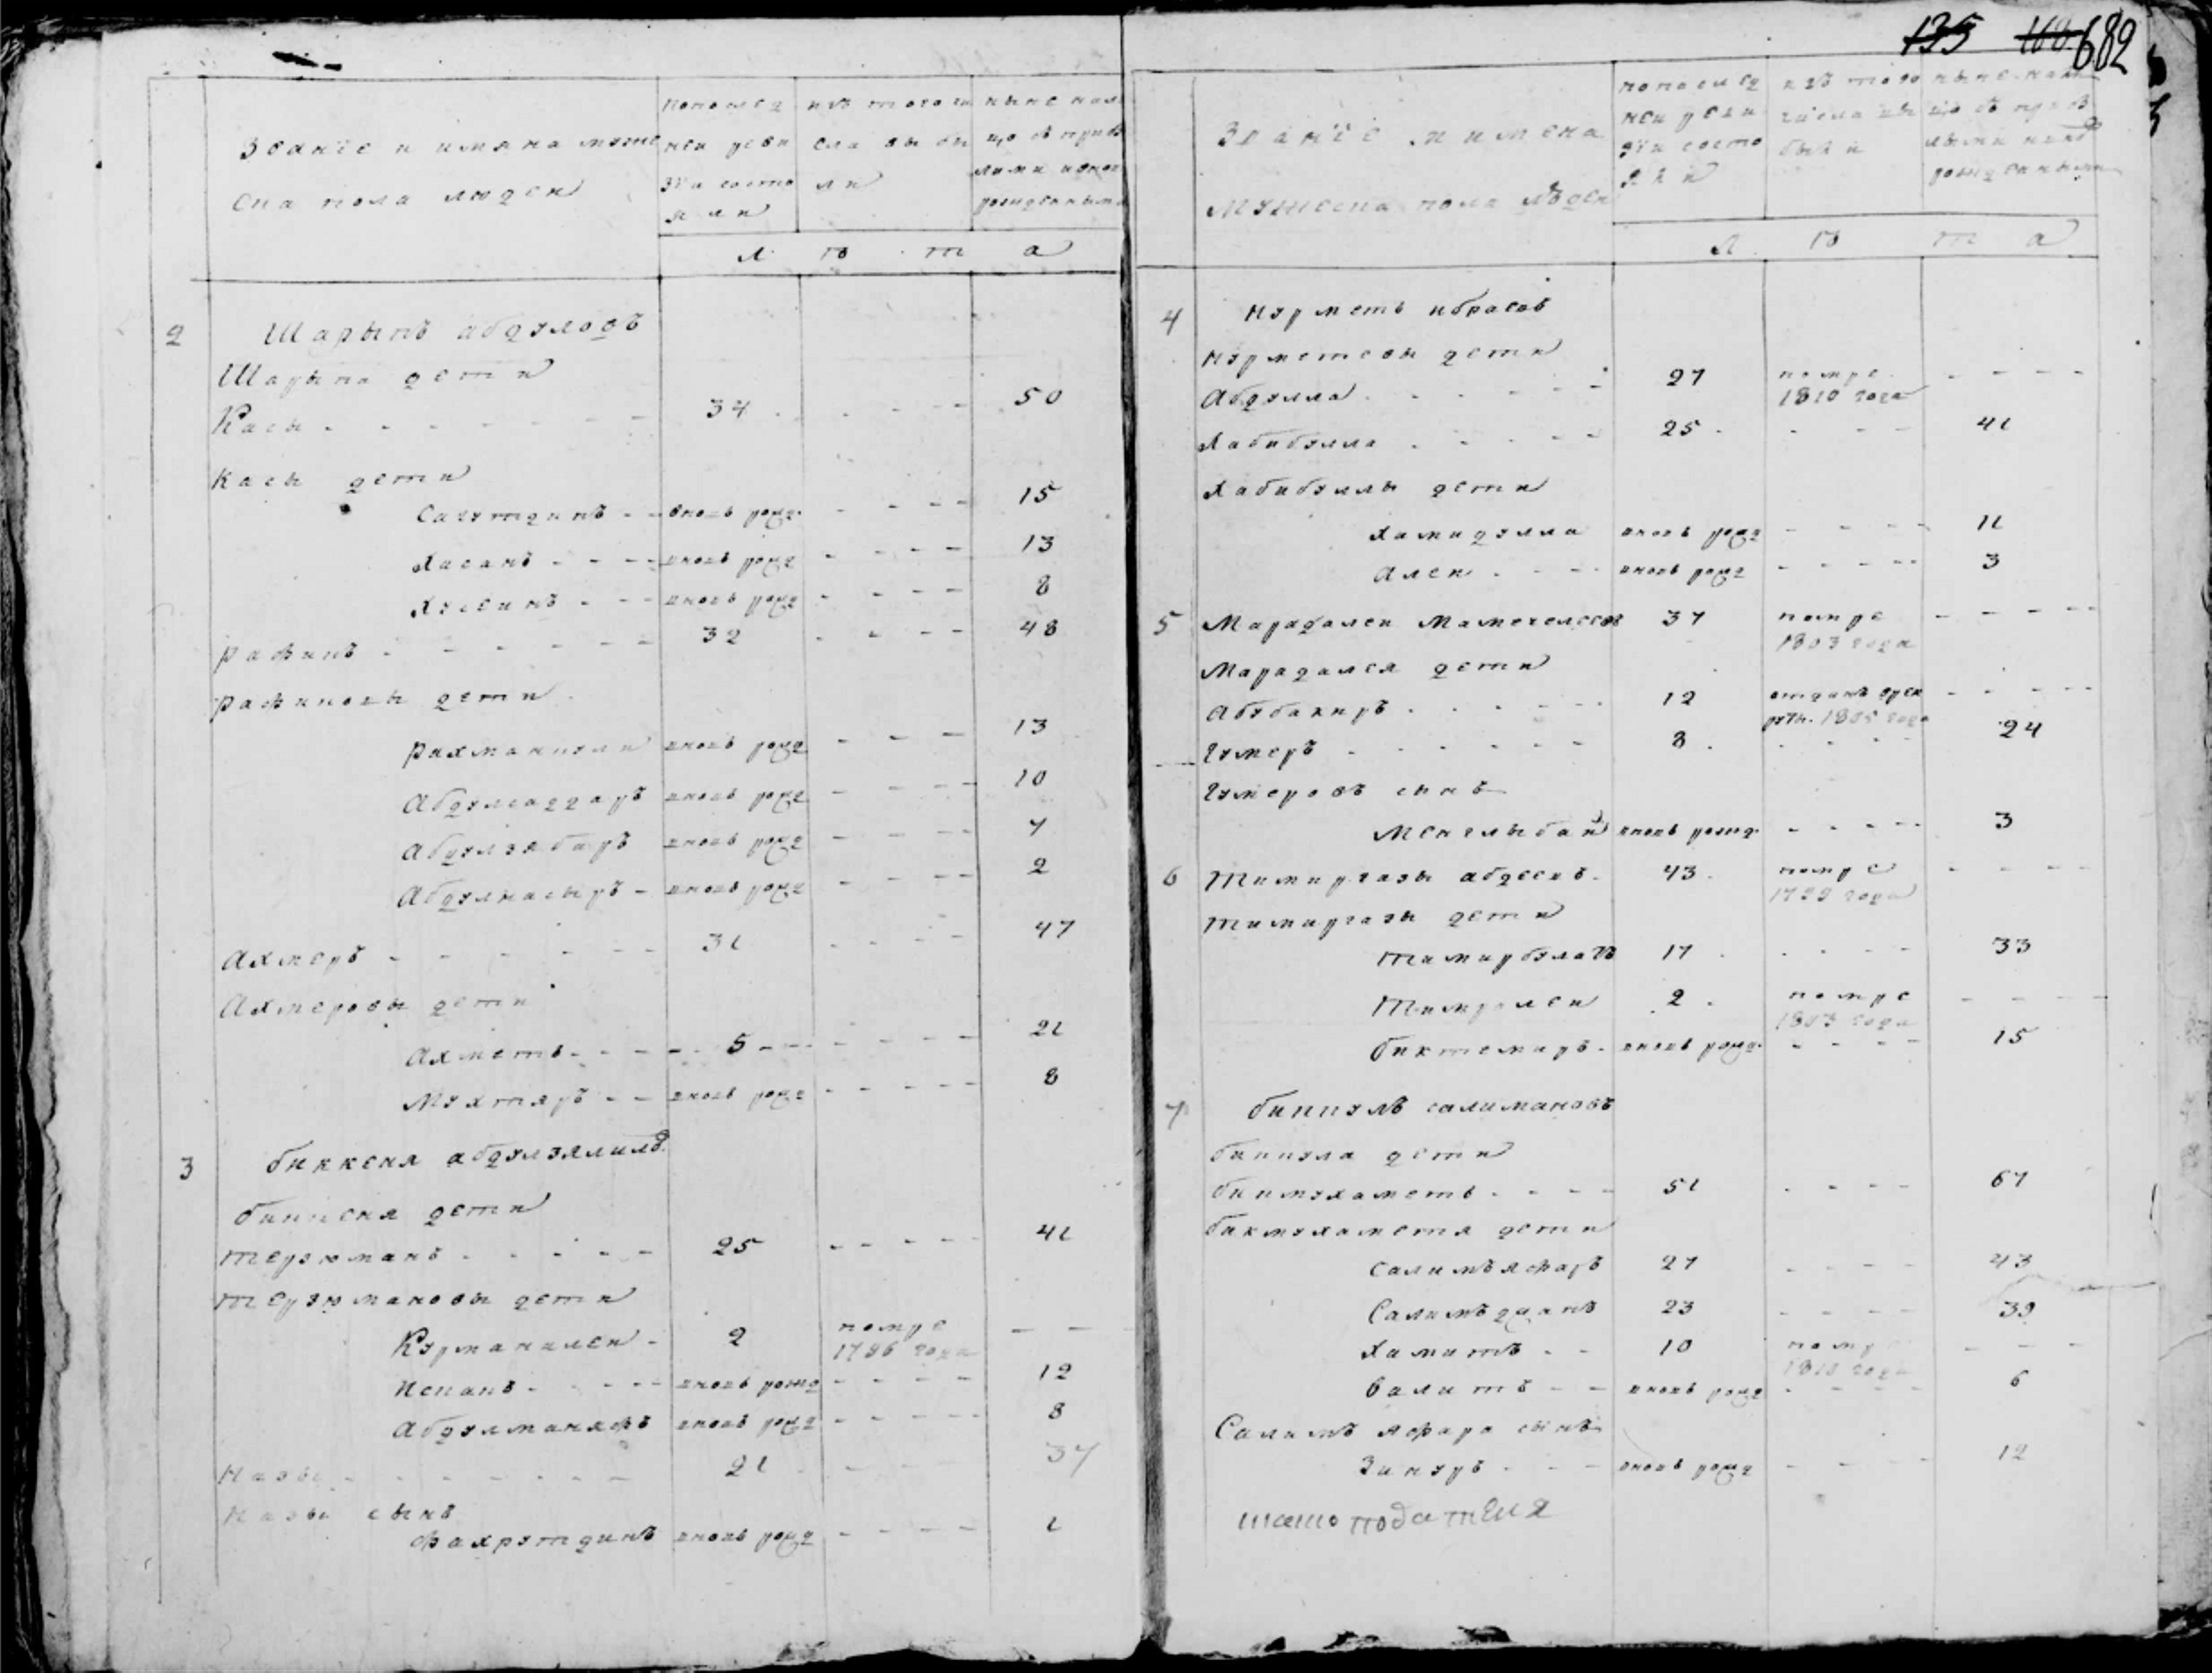 135 168 682
Званïе и имяна муже
ска пола людеи
попослед
неи реви
зïи состо
яли
изъ того чи
сла выбы
ли
ныне нали
цо съ приб
лыми и вног
рожденными
л ѣ т а
2 Шарыпъ абдуловъ
Шарыпа дети
Касы 34 50
Касы дети
Сагутдинъ вновь рожд. 15
Хасанъ вновь рожд 13
Хусеинъ вновь рожд 8
Рафикъ 32 48
Рафиковы дети
Рахманкули вновь рожд 13
Абдулсаттаръ вновь рожд 10
Абдулзябаръ вновь рожд 7
Абдулнасыръ вновь рожд 2
Ахмеръ 31 47
Ахмеровы дети
Ахметь 5 21
Мухтяръ вновь рожд 8
3 биккеня абдулзялиловъ
биккеня дети
Терзюманъ 25 41
Терзюмановы дети
Курманалеи 2 помре
1796 года
Испанъ вновь рожд 12
Абдулманяфъ вновь рожд 8
Назы 21 37
Назы сынъ
Фахрутдинъ вновь рожд 1
Званïе и имена
Мужеска пола людеи
попослед
неи реви
зïи состо
яли
изъ того
числа вы
были
ныне нали
цо съ приб
лыми и внов
рожденными
л ѣ т а
4 Нурметь ибраевъ
Нурметевы дети
Абдулла 27 помре
1810 года
Хабибулла 25 41
Хабибуллы дети
Хамидулла вновь рожд 11
Алеи вновь рожд 3
5 Марадалеи Маметелеевъ 37 помре
1803 года
Марадалея дети
Абубакиръ 12 отданъ врек
руты 1805 года
Гумеръ 8 24
Гумеровъ сынъ
Менглыбаи вновь рожд. 3
6 Тимиргазы абдеевъ 43 помре
1799 года
Тимиргазы дети
Тимирбулатъ 17 33
Тимралеи 2 помре
1803 года
биктемиръ вновь рожд. 15
7 биккулъ салимановъ
биккула дети
бикмухаметь 51 67
бикмухаметя дети
Салимъяфаръ 27 43
Салимъджанъ 23 39
Хамитъ 10 помр
1810 года
Валитъ вновь рожд 6
Салимъ яфара сынъ
Зинуръ вновь рожд 12